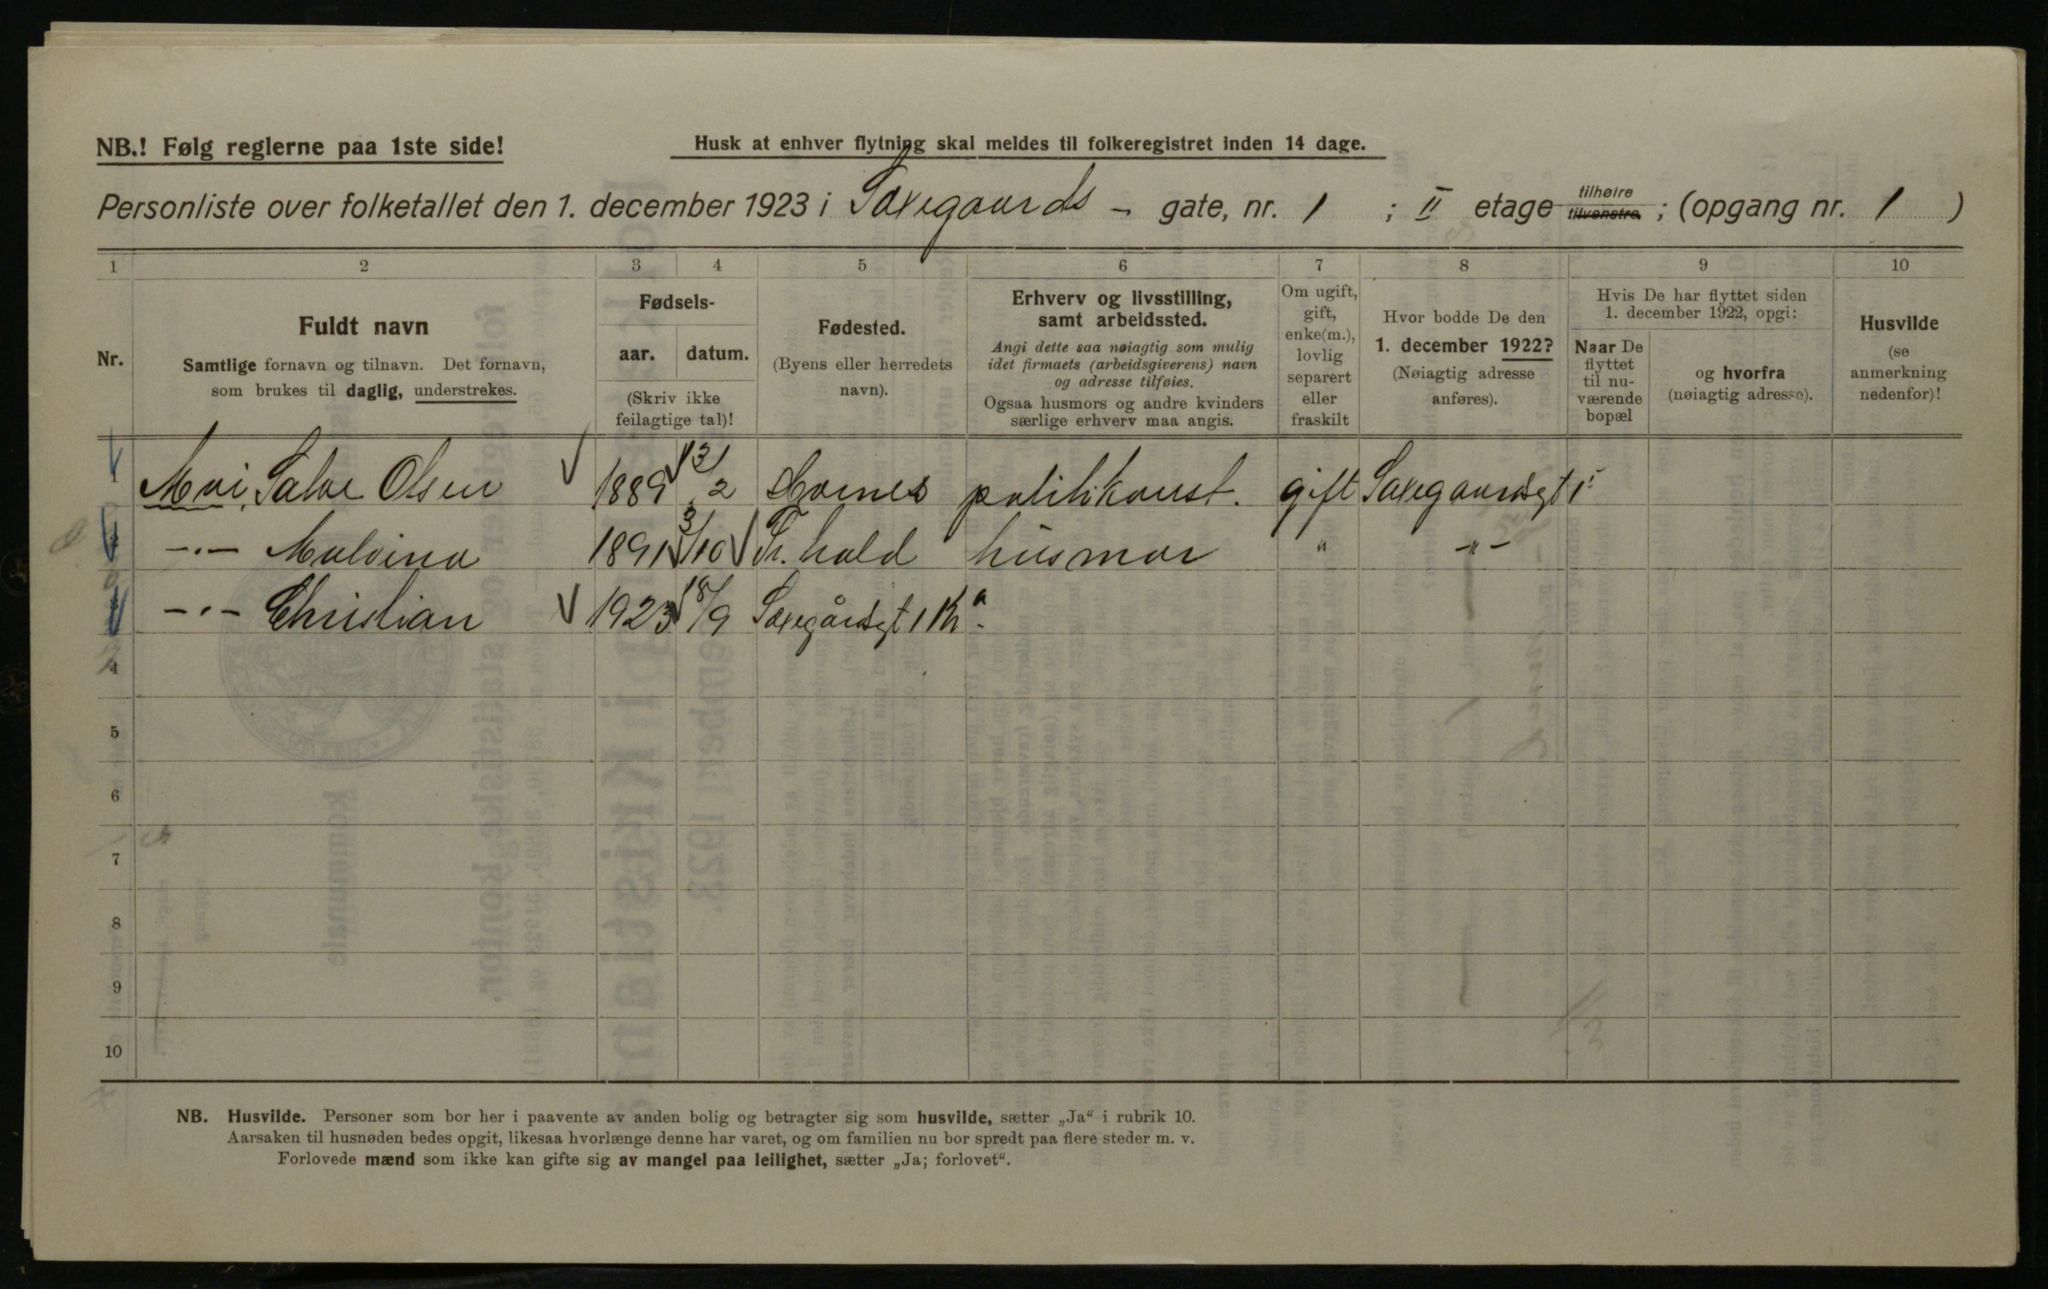 NB.! Følg reglerne paa 1ste side!
Husk at enhver flytning skal meldes til folkeregistret inden 14 dage.
Personliste over folketallet den 1. december 1923 i Saxegaards - gate, nr. 1 ; II etage tilhøire tilvenstre ; (opgang nr. 1 )
1 2 3 4 5 6 7 8 9 10
Nr.
Fuldt navn
Samtlige fornavn og tilnavn. Det fornavn,
som brukes til daglig, understrekes.
Fødsels-
aar. datum.
(Skriv ikke
feilagtige tal)!
Fødested.
(Byens eller herredets
navn).
Erhverv og livsstilling,
samt arbeidssted.
Angi dette saa nøiagtig som mulig
idet firmaets (arbeidsgiverens) navn
og adresse tilføies.
Ogsaa husmors og andre kvinders
særlige erhverv maa angis.
Om ugift,
gift,
enke(m.),
lovlig
separert
eller
fraskilt
Hvor bodde De den
1. december 1922?
(Nøiagtig adresse
anføres).
Hvis De har flyttet siden
1. december 1922, opgi:
Naar De
flyttet
til nu-
værende
bopæl
og hvorfra
(nøiagtig adresse).
Husvilde
(se
anmerkning
nedenfor)!
Moi, Salve Olsen 1889 13/2 Hornes politikonst. gift Saxegaardsgt 1
-"- Malvina 1891 3/10 Fr.hald husmor " -"-
-"- Christian 1923 18/9 Saxegårdsgt 1 Kr.a
4
5
6
7
8
9
10
NB. Husvilde. Personer som bor her i paavente av anden bolig og betragter sig som husvilde, sætter „Ja“ i rubrik 10.
Aarsaken til husnøden bedes opgit, likesaa hvorlænge denne har varet, og om familien nu bor spredt paa flere steder m. v.
Forlovede mænd som ikke kan gifte sig av mangel paa leilighet, sætter „Ja; forlovet“.